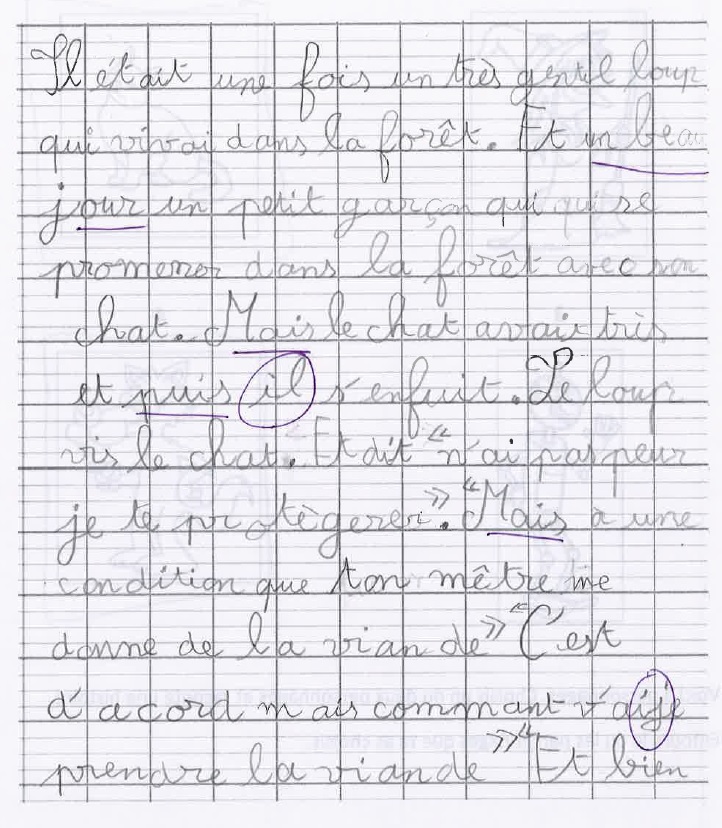 Il était une fois un très gentil loup
qui vivai dans la forêt. Et un beau
jour un petit garçon qui qui se
promener dans la forêt avec son
chat. Mais le chat avait très
et puis il s'enfuit. Le loup
vis le chat. Et dit "n'ai pas peur
je te protègerer". "Mais à une
condition que ton mêtre me
donne de la viande" "C'est
d'acord mais commant v'aije
prendre la viande" "Et bien